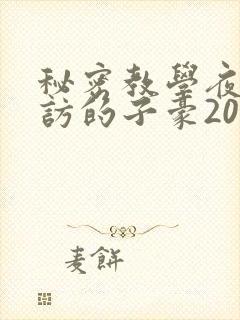 秘密教學夜
訪的子豪20
麦餅